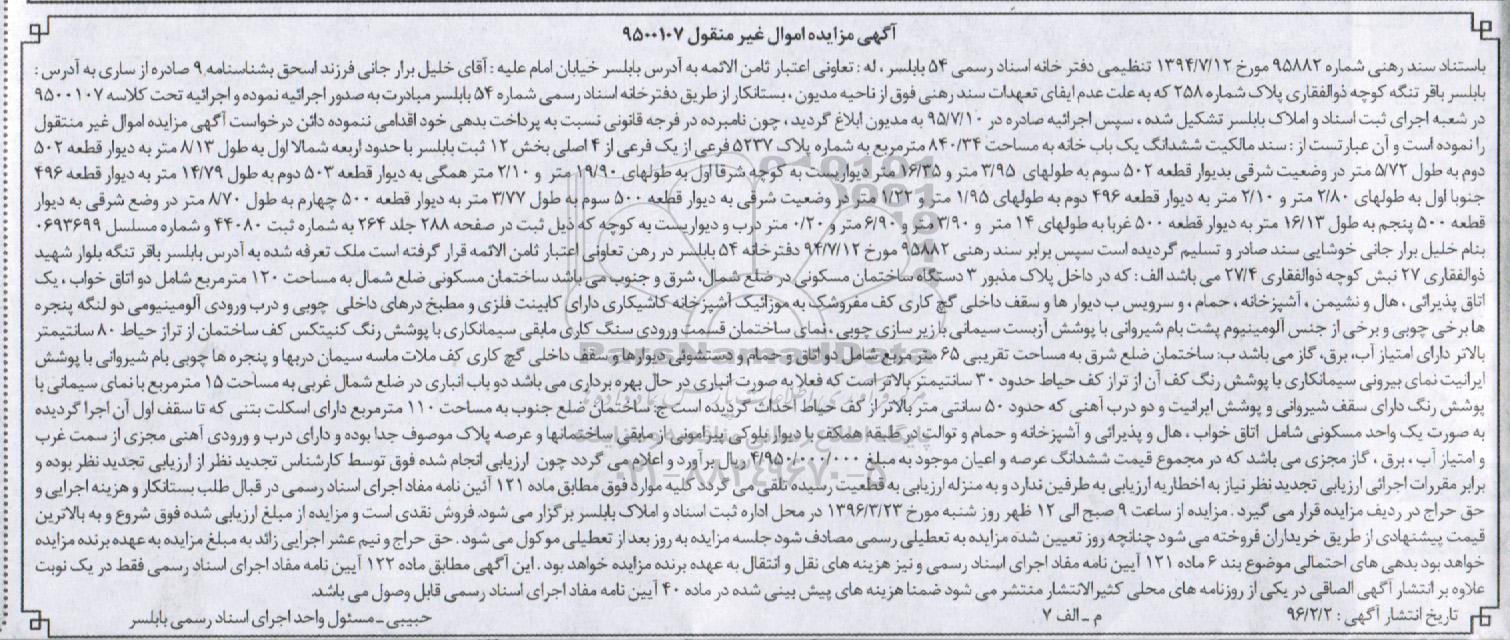 آگهی مزایده اموال غیر منقول ۹۵۰۰۱۰۷
باستناد سند رهنی شماره ۹۵۸۸۲ مورخ ۱۳۹۴/۷/۱۲ تنظیمی دفتر خانه اسناد رسمی ۵۴ بابلسر ، له : تعاونی اعتبار ثامن الائمه به آدرس بابلسر خیابان امام علیه : آقای خلیل برار جانی فرزند اسحق بشناسنامه ۹ صادره از ساری به آدرس :
بابلسر باقر تنگه کوچه ذوالفقاری پلاک شماره ۲۵۸ که به علت عدم ایفای تعهدات سند رهنی فوق از ناحیه مدیون ، بستانکار از طریق دفترخانه اسناد رسمی شماره ۵۴ بابلسر مبادرت به صدور اجرائیه نموده و اجرائیه تحت کلاسه ۹۵۰۰۱۰۷
در شعبه اجرای ثبت اسناد و املاک بابلسر تشکیل شده ، سپس اجرائیه صادره در ۹۵/۷/۱۰ به مدیون ابلاغ گردید ، چون نامبرده در فرجه قانونی نسبت به پرداخت بدهی خود اقدامی ننموده دائن درخواست آگهی مزایده اموال غیر منتقول
را نموده است و آن عبارتست از : سند مالکیت ششدانگ یک باب خانه به مساحت ۸۴۰/۳۴ مترمربع به شماره پلاک ۵۲۳۷ فرعی از یک فرعی از ۴ اصلی بخش ۱۲ ثبت بابلسر با حدود اربعه شمالا اول به طول ۸/۱۳ متر به دیوار قطعه ۵۰۲
دوم به طول ۵/۷۲ متر در وضعیت شرقی بدیوار قطعه ۵۰۲ سوم به طولهای ۳/۹۵ متر و ۱۶/۳۵ متر دیواریست به کوچه شرقا اول به طولهای ۱۹/۹۰ متر و ۲/۱۰ متر همگی به دیوار قطعه ۵۰۳ دوم به طول ۱۴/۷۹ متر به دیوار قطعه ۴۹۶
جنوبا اول به طولهای ۲/۸۰ متر و ۲/۱۰ متر به دیوار قطعه ۴۹۶ دوم به طولهای ۱/۹۵ متر و ۱/۲۲ متر در وضعیت شرقی به دیوار قطعه ۵۰۰ سوم به طول ۳/۷۷ متر به دیوار قطعه ۵۰۰ چهارم به طول ۸/۷۰ متر در وضع شرقی به دیوار
قطعه ۵۰۰ پنجم به طول ۱۶/۱۳ متر به دیوار قطعه ۵۰۰ غربا به طولهای ۱۴ متر و ۳/۹۰ متر و ۶/۹۰ متر و ۰/۲۰ متر درب و دیواریست به کوچه که ذیل ثبت در صفحه ۲۸۸ جلد ۲۶۴ به شماره ثبت ۴۴۰۸۰ و شماره مسلسل ۰۶۹۳۶۹۹
بنام خلیل برار جانی خوشایی سند صادر و تسلیم گردیده است سپس برابر سند رهنی ۹۵۸۸۲ مورخ ۹۴/۷/۱۲ دفترخانه ۵۴ بابلسر در رهن تعاونی اعتبار ثامن الائمه قرار گرفته است ملک تعرفه شده به آدرس بابلسر باقر تنگه بلوار شهید
ذوالفقاری ۲۷ نبش کوچه ذوالفقاری ۲۷/۴ می باشد الف : که در داخل پلاک مذبور ۳ دستگاه ساختمان مسکونی در ضلع شمال، شرق و جنوب می باشد ساختمان مسکونی ضلع شمال به مساحت ۱۲۰ مترمربع شامل دو اتاق خواب ، یک
اتاق پذیرائی ، هال و نشیمن ، آشپزخانه ، حمام ، و سرویس ب دیوار ها و سقف داخلی گچ کاری کف مفروشک به موزائیک آشپزخانه کاشیکاری دارای کابینت فلزی و مطبخ درهای داخلی چوبی و درب ورودی آلومینیومی دو لنگه پنجره
ها برخی چوبی و برخی از جنس آلومینیوم پشت بام شیروانی با پوشش آزبست سیمانی با زیر سازی چوبی ، نمای ساختمان قسمت ورودی سنگ کاری مابقی سیمانکاری با پوشش رنگ کنیتکس کف ساختمان از تراز حیاط ۸۰ سانتیمتر
بالاتر دارای امتیاز آب، برق، گاز می باشد ب: ساختمان ضلع شرق به مساحت تقریبی ۶۵ متر مربع شامل دو اتاق و حمام و دستشوئی دیوارها و سقف داخلی گچ کاری کف ملات ماسه سیمان دربها و پنجره ها چوبی بام شیروانی با پوشش
ایرانیت نمای بیرونی سیمانکاری با پوشش رنگ کف آن از تراز کف حیاط حدود ۳۰ سانتیمتر بالاتر است که فعلا به صورت انباری در حال بهره برداری می باشد دو باب انباری در ضلع شمال غربی به مساحت ۱۵ مترمربع با نمای سیمانی با
پوشش رنگ دارای سقف شیروانی و پوشش ایرانیت و دو درب آهنی که حدود ۵۰ سانتی متر بالاتر از کف حیاط احداث گردیده است ج: ساختمان ضلع جنوب به مساحت ۱۱۰ مترمربع دارای اسکلت بتنی که تا سقف اول آن اجرا گردیده
به صورت یک واحد مسکونی شامل اتاق خواب ، هال و پذیرائی و آشپزخانه و حمام و توالت در طبقه همکف با دیوار بلوکی پیرامونی از مابقی ساختمانها و عرصه پلاک موصوف جدا بوده و دارای درب و ورودی آهنی مجزی از سمت غرب
و امتیاز آب ، برق ، گاز مجزی می باشد که در مجموع قیمت ششدانگ عرصه و اعیان موجود به مبلغ ۴/۹۵۰/۰۰۰/۰۰۰ ریال برآورد و اعلام می گردد چون ارزیابی انجام شده فوق توسط کارشناس تجدید نظر از ارزیابی تجدید نظر بوده و
برابر مقررات اجرائی ارزیابی تجدید نظر نیاز به اخطاریه ارزیابی به طرفین ندارد و به منزله ارزیابی به قطعیت رسیده تلقی می گردد کلیه موارد فوق مطابق ماده ۱۲۱ آئین نامه مفاد اجرای اسناد رسمی در قبال طلب بستانکار و هزینه اجرایی و
حق حراج در ردیف مزایده قرار می گیرد . مزایده از ساعت ۹ صبح الی ۱۲ ظهر روز شنبه مورخ ۱۳۹۶/۳/۲۳ در محل اداره ثبت اسناد و املاک بابلسر برگزار می شود. فروش نقدی است و مزایده از مبلغ ارزیابی شده فوق شروع و به بالاترین
قیمت پیشنهادی از طریق خریداران فروخته می شود چنانچه روز تعیین شده مزایده به تعطیلی رسمی مصادف شود جلسه مزایده به روز بعد از تعطیلی موکول می شود . حق حراج و نیم عشر اجرایی زائد به مبلغ مزایده به عهده برنده مزایده
خواهد بود بدهی های احتمالی موضوع بند ۶ ماده ۱۲۱ آیین نامه مفاد اجرای اسناد رسمی و نیز هزینه های نقل و انتقال به عهده برنده مزایده خواهد بود . این آگهی مطابق ماده ۱۲۲ آیین نامه مفاد اجرای اسناد رسمی فقط در یک نوبت
علاوه بر انتشار آگهی الصاقی در یکی از روزنامه های محلی کثیرالانتشار منتشر می شود ضمنا هزینه های پیش بینی شده در ماده ۴۰ آیین نامه مفاد اجرای اسناد رسمی قابل وصول می باشد.
تاریخ انتشار آگهی : ۹۶/۲/۲ م ـ الف ۷ حبیبی ـ مسئول واحد اجرای اسناد رسمی بابلسر
ParsNamadData
۰۲۱-۸۸۳۴۹۶۷۰-۵